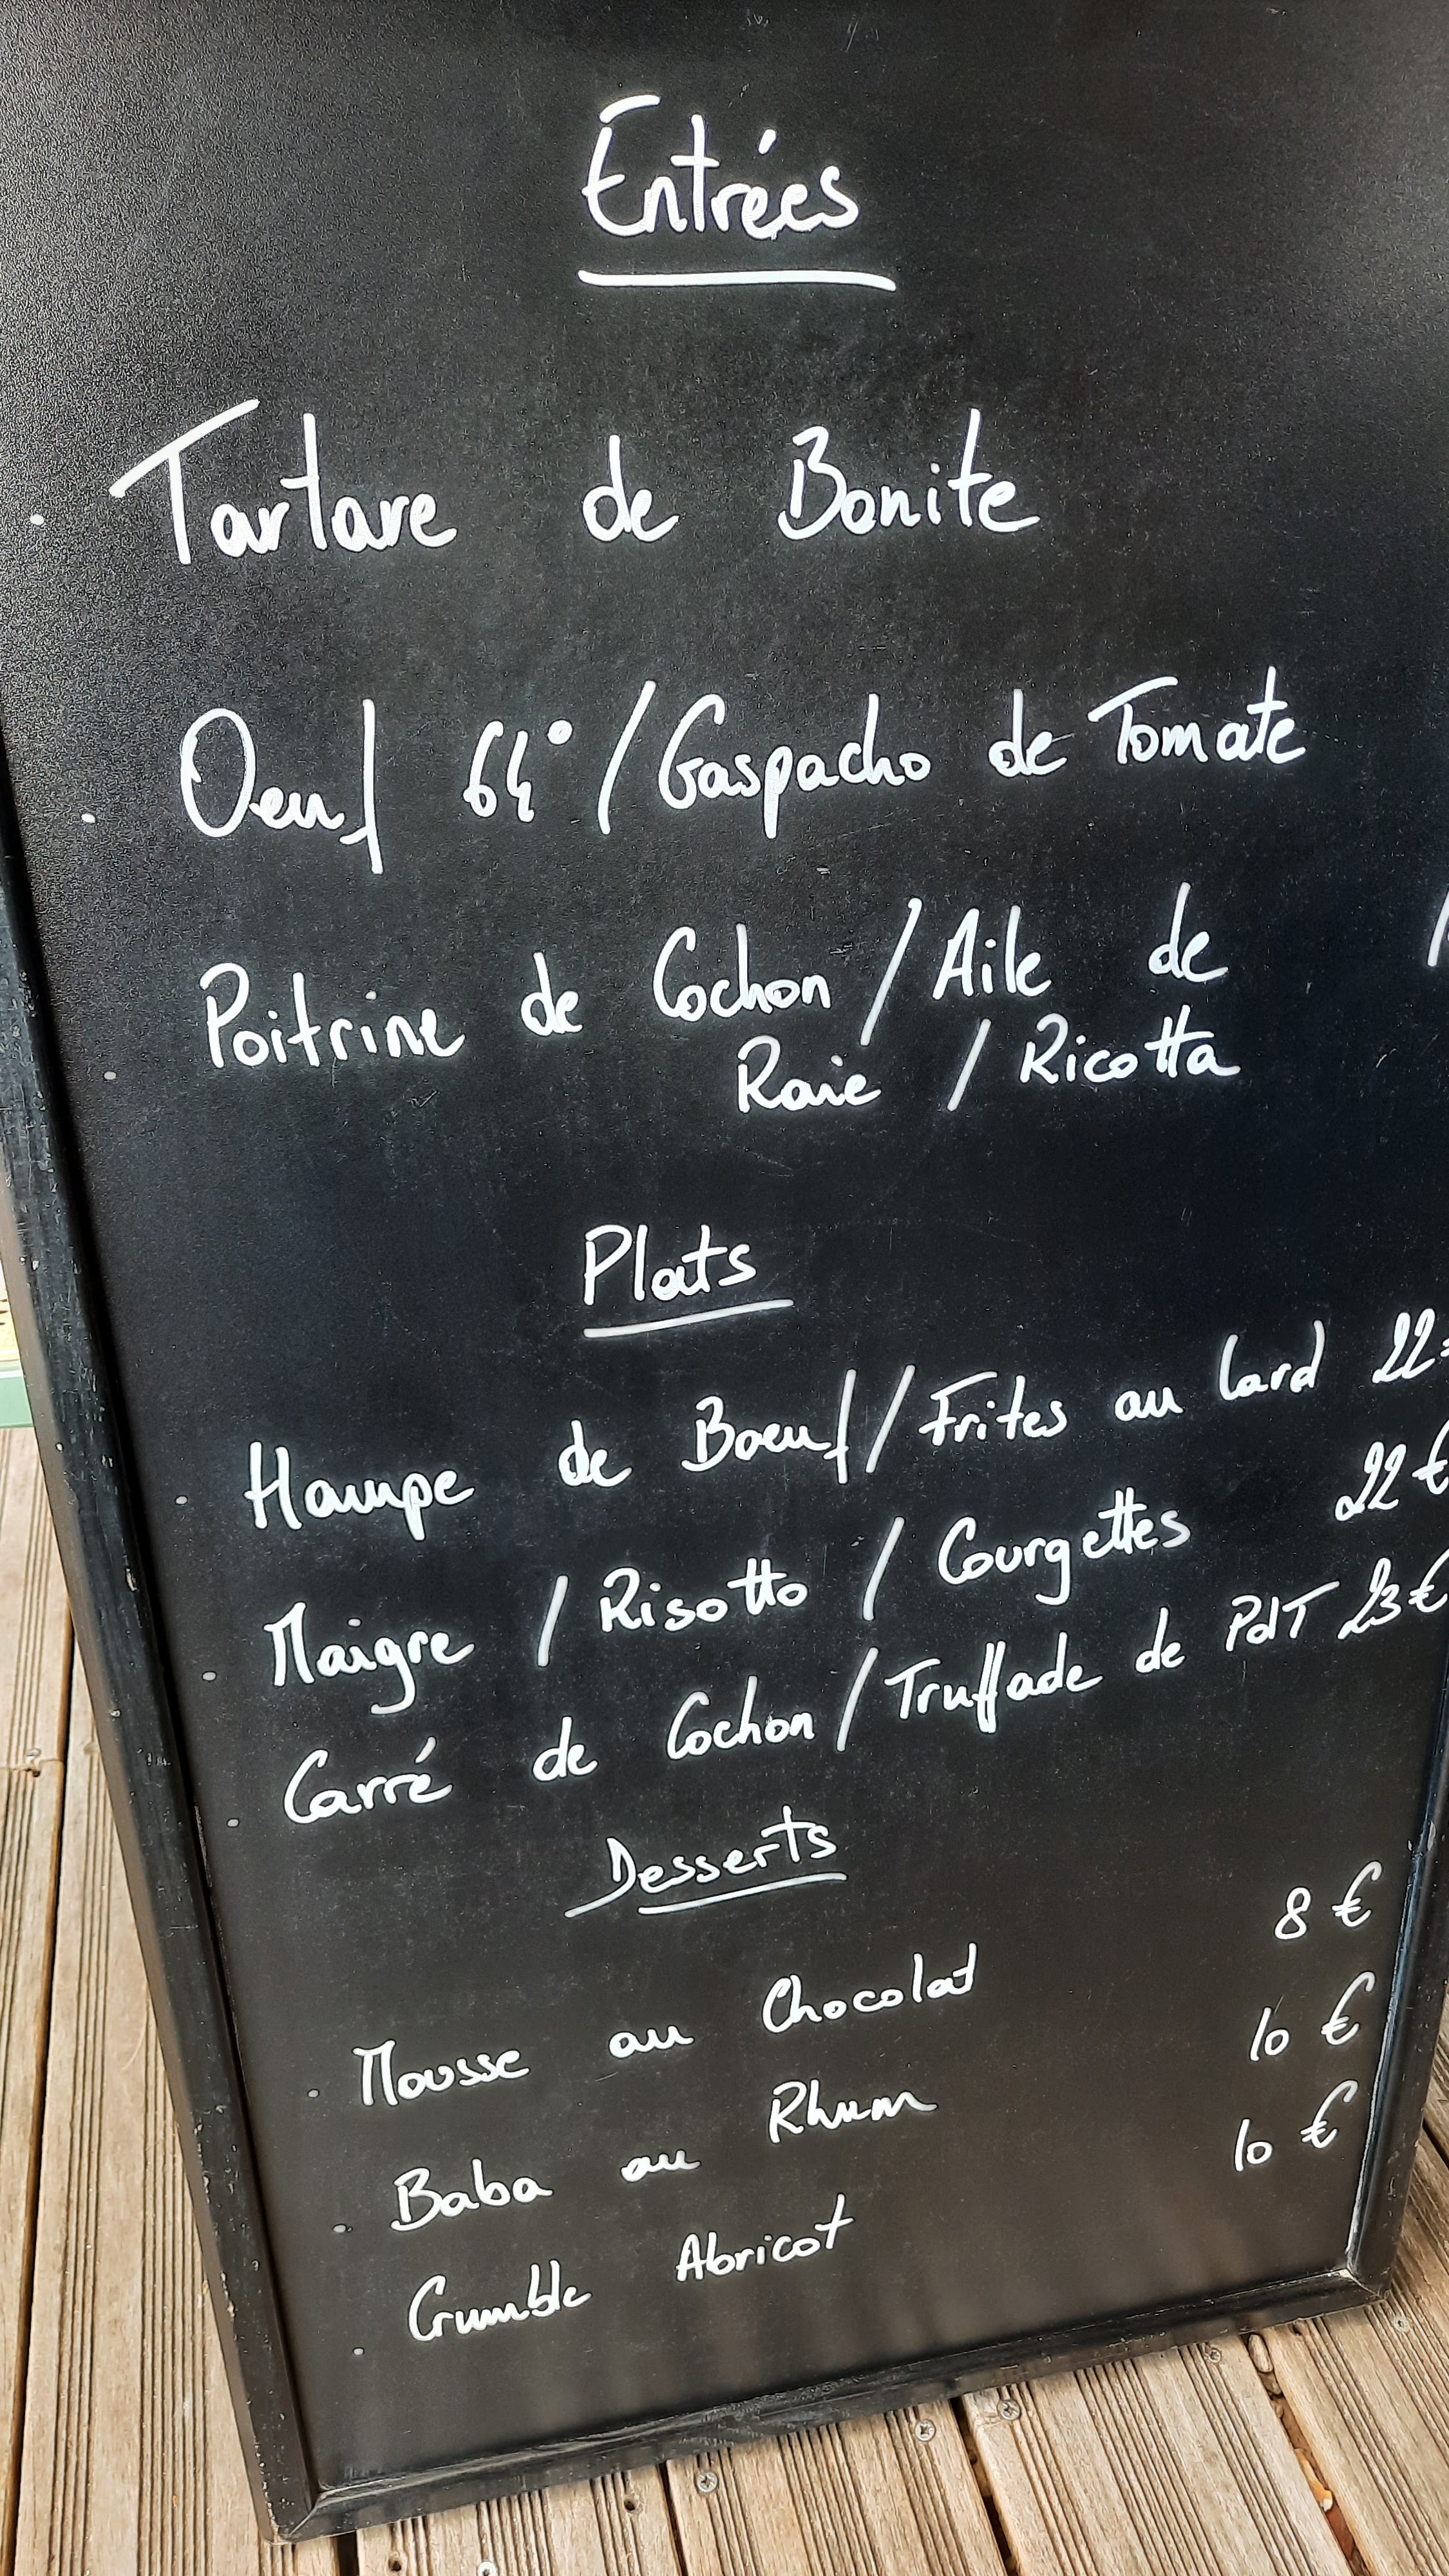 Entrées
Tartare de Bonite
Oeuf 64° / Gaspacho de Tomate
Poitrine de Cochon / Aile de
Raie / Ricotta
Plats
Hampe de Boeuf / Frites au lard 22
Maigre / Risotto / Courgettes 22 €
Carré de Cochon / Truffade de PdT 23 €
Desserts
Mousse au Chocolat 8 €
Baba au Rhum 10 €
Crumble Abricot 10 €